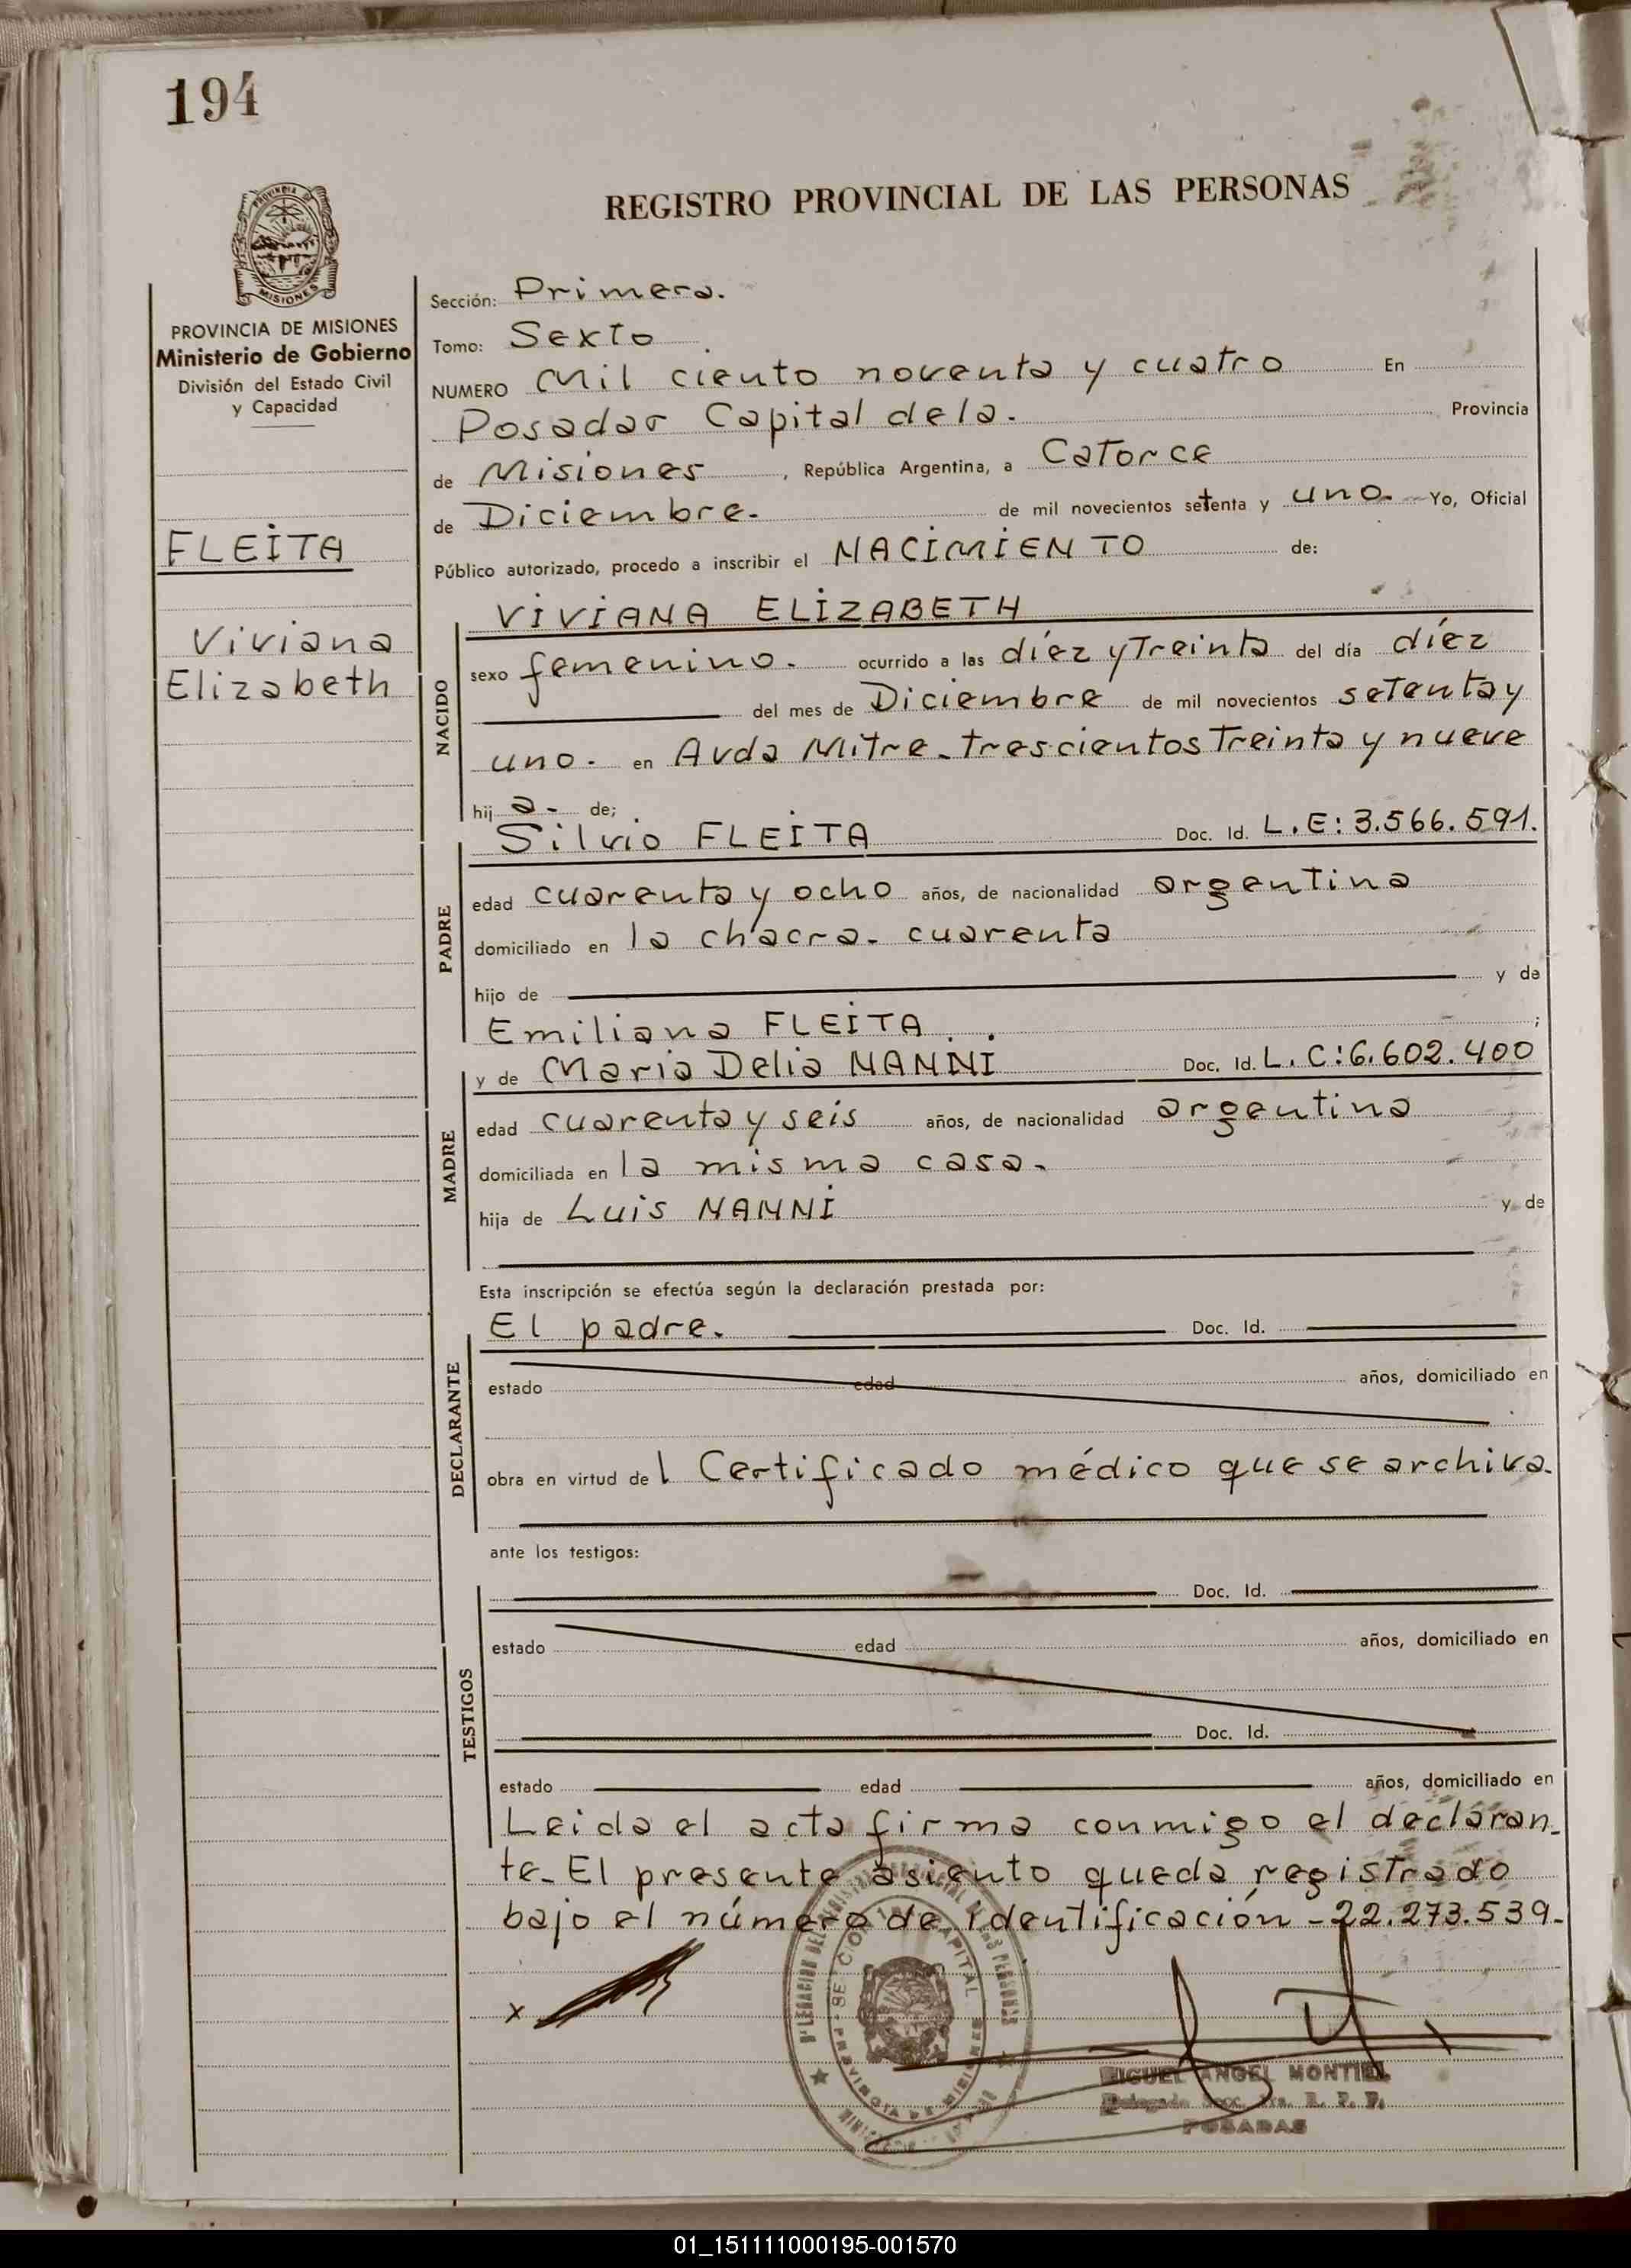 194
REGISTRO PROVINCIAL DE LAS PERSONAS
PROVINCIA DE MISIONES
Ministerio de Gobierno
División del Estado Civil
y Capacidad
FLEITA
Viviana
Elizabeth
Sección: Primera.
Tomo: Sexto
NUMERO Mil ciento noventa y cuatro En
Posadas Capital de la. Provincia
de Misiones, República Argentina, a Catorce
de Diciembre. de mil novecientos setenta y uno. Yo, Oficial
Público autorizado, procedo a inscribir el NACIMIENTO de:
NACIDO
VIVIANA ELIZABETH
sexo femenino. ocurrido a las díez y Treinta del día díez
del mes de Diciembre de mil novecientos setenta y
uno. en Avda Mitre - trescientos Treinta y nueve
hij a - de;
PADRE
Silvio FLEITA Doc. Id. L.E: 3.566.591.
edad cuarenta y ocho años, de nacionalidad argentina
domiciliado en la chacra - cuarenta
hijo de y de
Emiliana FLEITA ;
MADRE
y de Maria Delia NANNI Doc. Id. L.C: 6.602.400
edad cuarenta y seis años, de nacionalidad argentina
domiciliada en la misma casa.
hija de Luis NANNI y de
Esta inscripción se efectúa según la declaración prestada por:
DECLARANTE
El padre. Doc. Id.
estado edad años, domiciliado en
obra en virtud de l Certificado médico que se archiva.
ante los testigos:
TESTIGOS
Doc. Id.
estado edad años, domiciliado en
Doc. Id.
estado edad años, domiciliado en
Leida el acta firma conmigo el declaran-
te. El presente asiento queda registrado
bajo el número de identificación - 22.273.539-
x
MIGUEL ANGEL MONTIEL
POSADAS
01_151111000195-001570